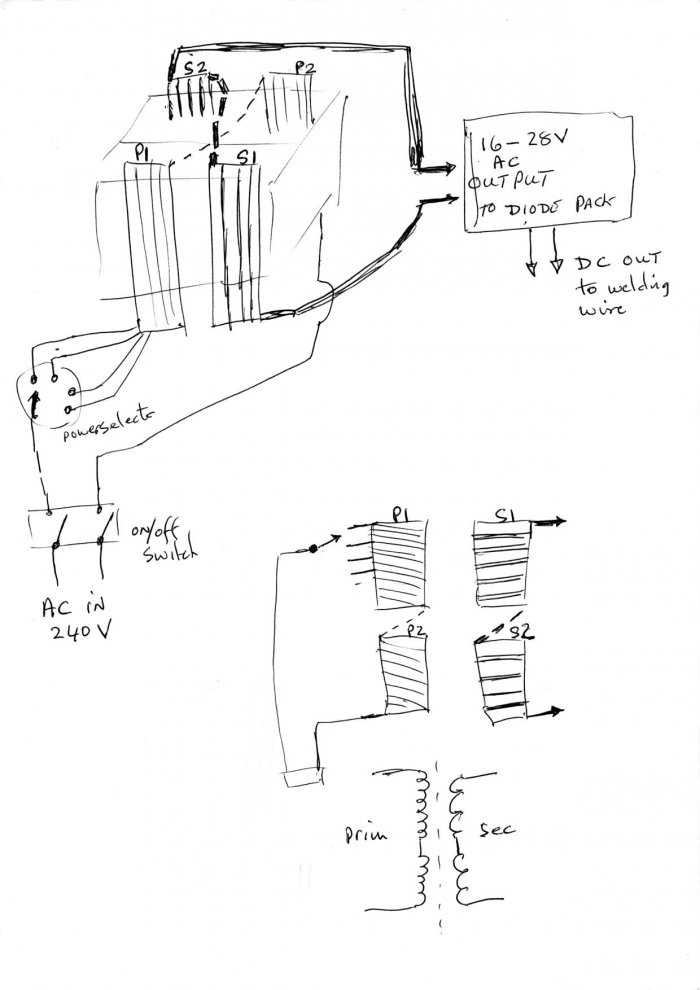 S2
P2
P1
S1
16-28V
AC
OUTPUT
TO DIODE PACK
DC OUT
to welding
wire
powerselectr
ON/OFF
Switch
AC IN
240V
P1
S1
P2
S2
prim
sec